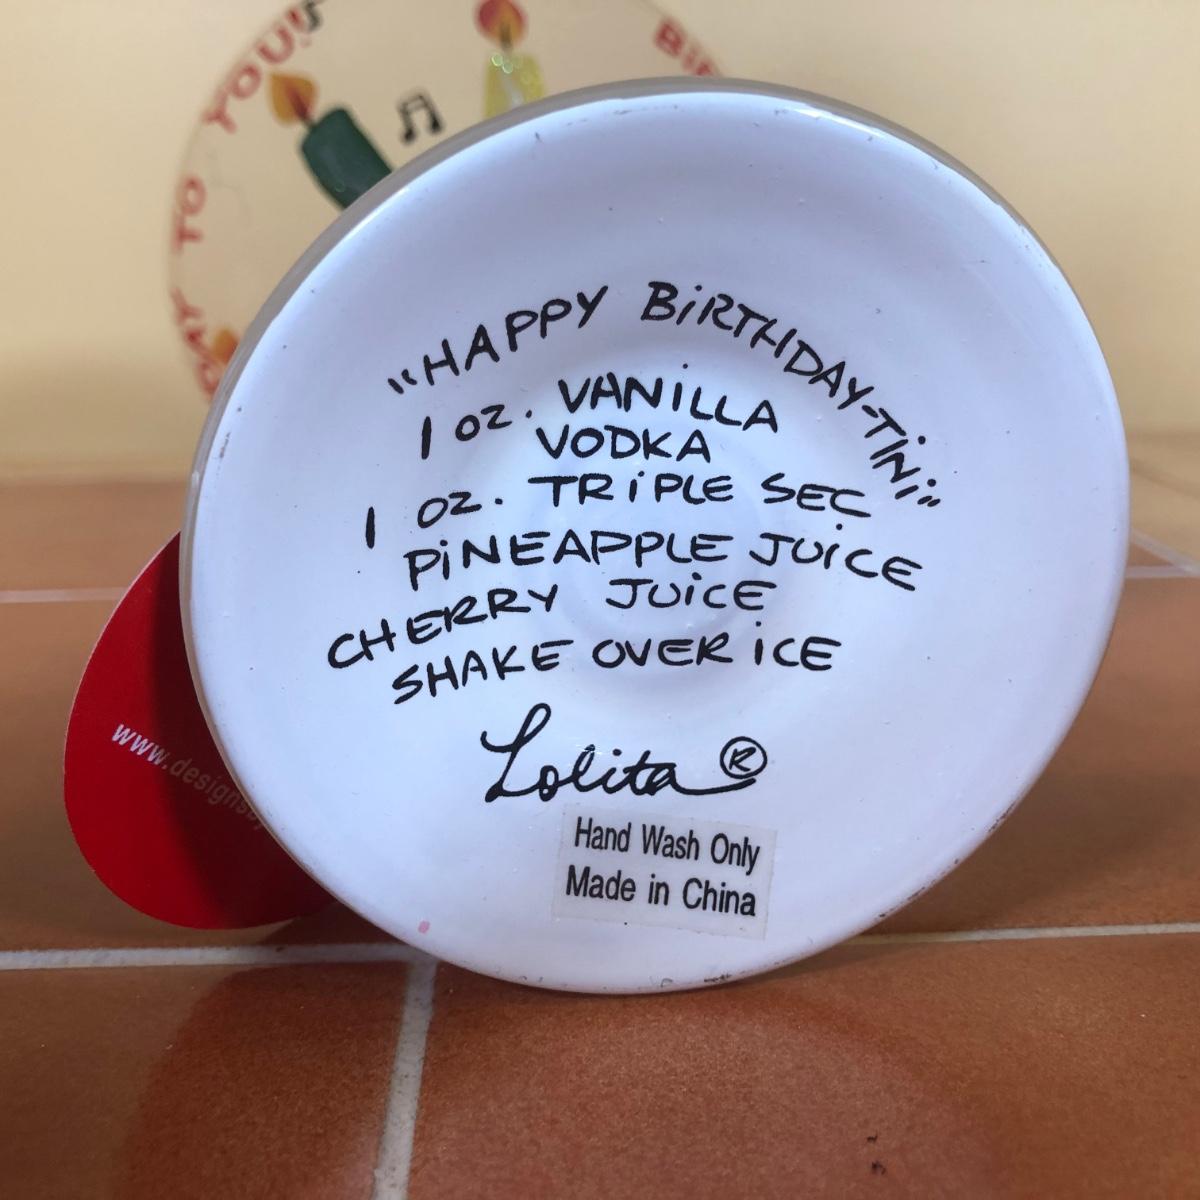 "HAPPY BiRTHDAY-TiNi"
1 oz. VANiLLA
VODKA
1 oz. TRiPLE SEC
PiNEAPPLE JUiCE
CHERRY JUiCE
SHAKE OVER iCE
Lolita ®
Hand Wash Only
Made in China
DAY TO YOU!
www.designsby